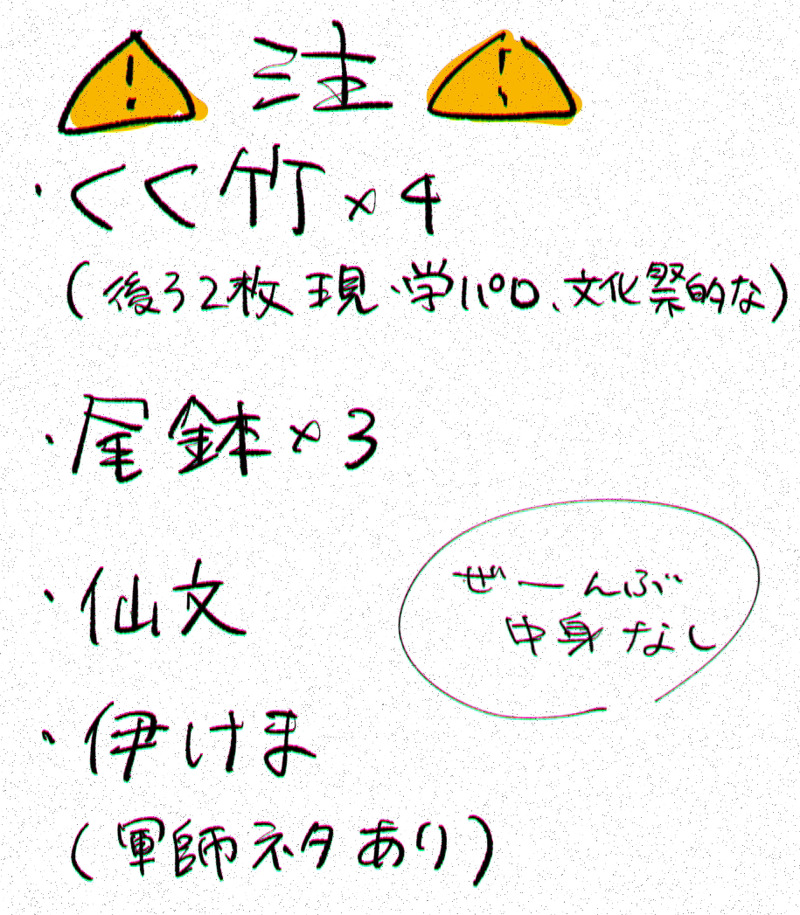 ⚠ 注 ⚠
・くく竹×4
(後ろ2枚現・学パロ、文化祭的な)
・尾鉢×3
・仙文
ぜーんぶ
中身なし
・伊けま
(軍師ネタあり)